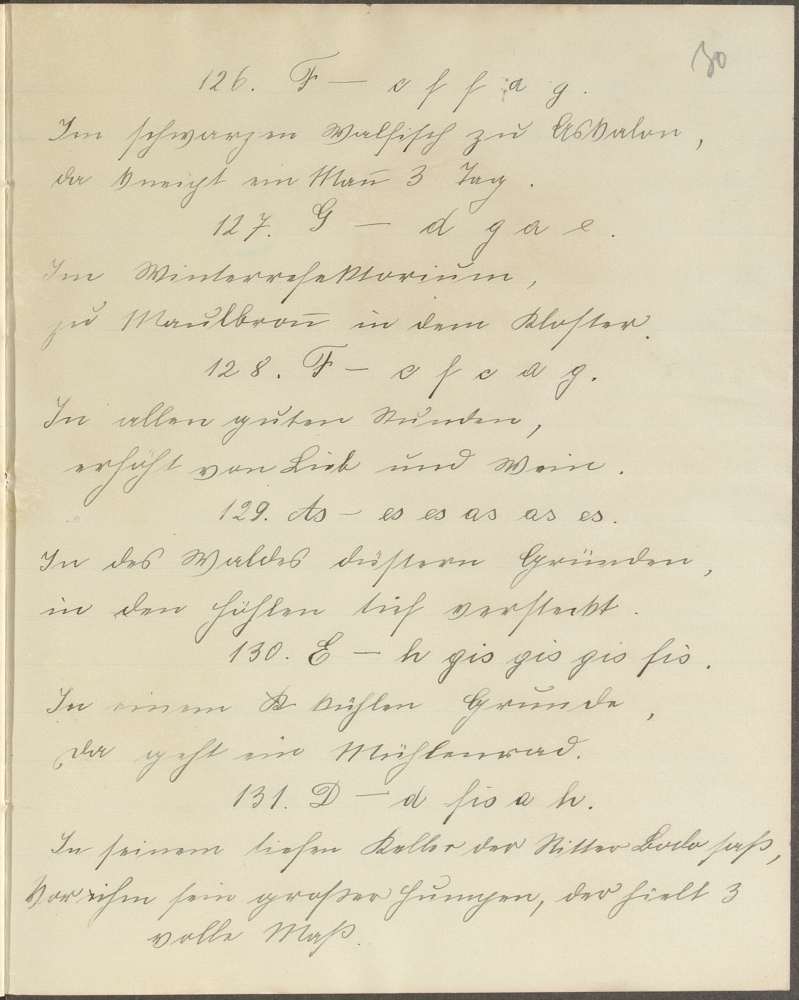 30
126. F — c f f a g.
Im schwarzen Walfisch zu Askalon,
da kneipt ein Mañ 3 Tag.
127. G — d g a e.
Im Winterrefektorium,
zu Maulbroñ in dem Kloster.
128. F — c f c a g.
In allen guten Stunden,
erhöht von Lieb und Wein.
129. As — es es as as es.
In des Waldes düstern Gründen,
in den Höhlen tief versteckt.
130. E — h gis gis gis fis.
In einem K kühlen Grunde,
da geht ein Mühlenrad.
131. D — d fis a h.
In seinem tiefen Keller der Ritter Bodo saß,
Vor ihm sein großer Humpen, der hielt 3
volle Maß.